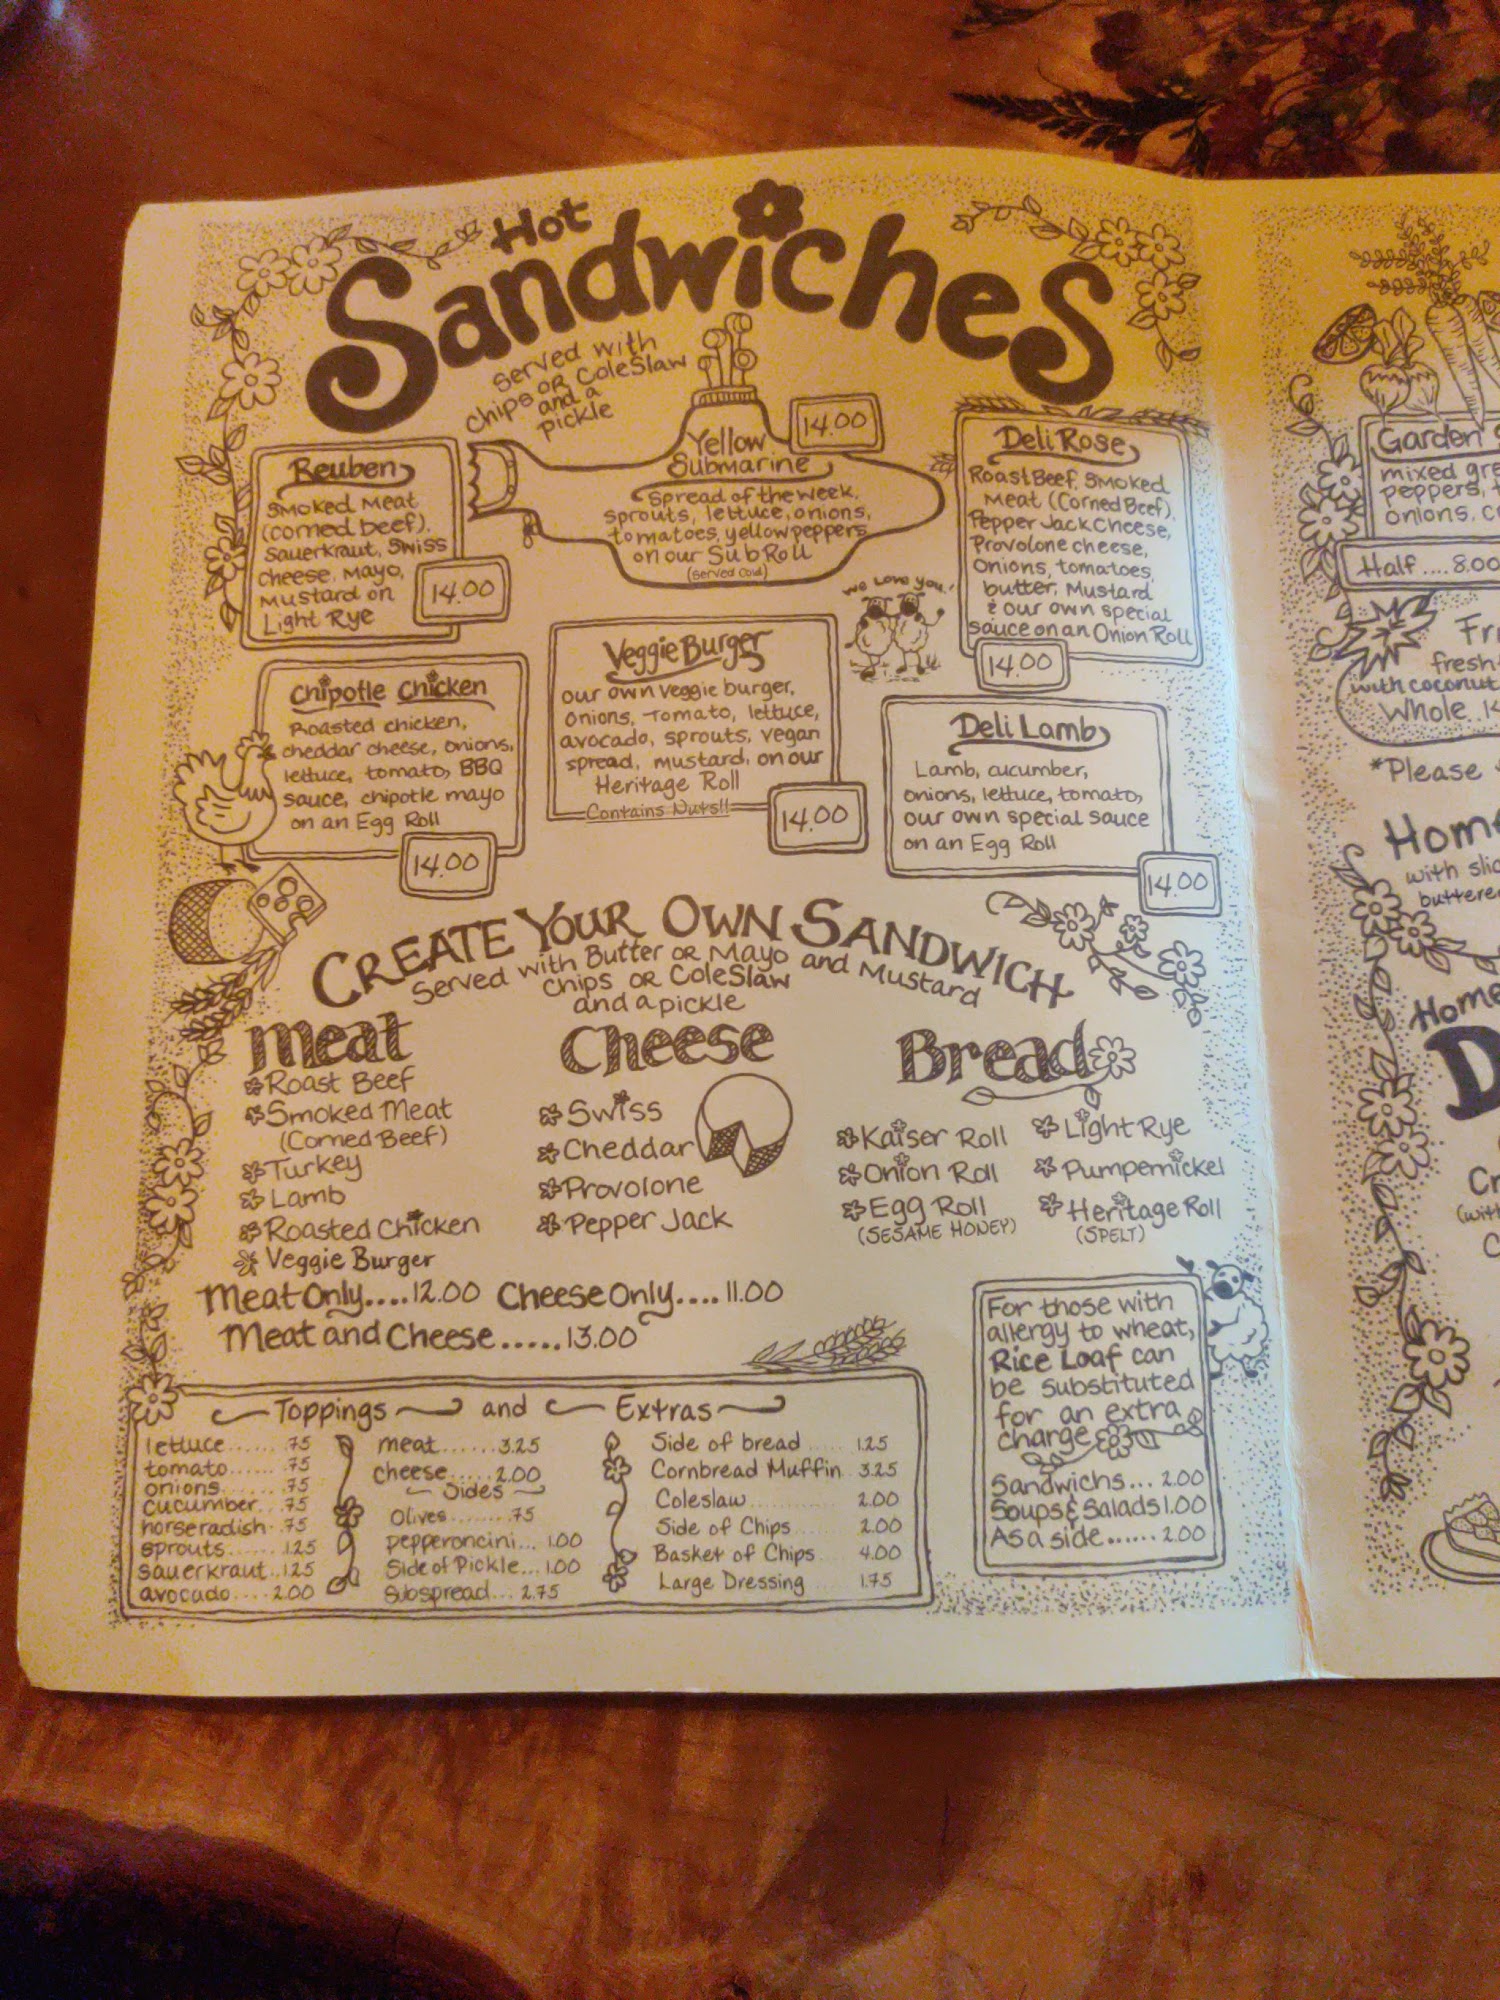 Hot
Sandwiches
served with
chips or ColeSlaw
and a
pickle
Reuben
Smoked Meat
(corned beef),
Sauerkraut, Swiss
cheese, Mayo,
Mustard on
Light Rye
14.00
Yellow
Submarine
14.00
Spread of the week,
sprouts, lettuce, onions,
tomatoes, yellow peppers
on our Sub Roll
(Served Cold)
Deli Rose
Roast Beef, Smoked
Meat (Corned Beef),
Pepper Jack Cheese,
Provolone cheese,
Onions, tomatoes,
butter, Mustard
& our own special
sauce on an Onion Roll
14.00
We Love you!
Chipotle Chicken
Roasted chicken,
cheddar cheese, onions,
lettuce, tomato, BBQ
sauce, chipotle mayo
on an Egg Roll
14.00
Veggie Burger
our own veggie burger,
onions, tomato, lettuce,
avocado, sprouts, vegan
spread, mustard, on our
Heritage Roll
Contains Nuts!!
14.00
Deli Lamb
Lamb, cucumber,
onions, lettuce, tomato,
our own special sauce
on an Egg Roll
14.00
Create Your Own Sandwich
Served with Butter or Mayo and Mustard
chips or ColeSlaw
and a pickle
Meat
Roast Beef
Smoked Meat
(Corned Beef)
Turkey
Lamb
Roasted Chicken
Veggie Burger
Cheese
Swiss
Cheddar
Provolone
Pepper Jack
Bread
Kaiser Roll
Onion Roll
Egg Roll
(SESAME HONEY)
Light Rye
Pumpernickel
Heritage Roll
(SPELT)
Meat Only....12.00 Cheese Only....11.00
Meat and Cheese.....13.00
Toppings and Extras
lettuce...... .75
tomato...... .75
onions...... .75
cucumber.. .75
horseradish. .75
sprouts...... 1.25
sauerkraut..1.25
avocado.... 2.00
meat......3.25
cheese.....2.00
Sides
Olives........75
pepperoncini... 1.00
Side of Pickle... 1.00
Subspread... 2.75
Side of bread ..... 1.25
Cornbread Muffin.. 3.25
Coleslaw............ 2.00
Side of Chips ...... 2.00
Basket of Chips ... 4.00
Large Dressing .... 1.75
For those with
allergy to wheat,
Rice Loaf can
be substituted
for an extra
charge
Sandwichs... 2.00
Soups & Salads 1.00
As a side...... 2.00
Garden
mixed gre
peppers,
onions, c
Half ....8.00
Fr
fresh
with coconut
Whole..
*Please
Hom
with slic
buttere
Home
D
Cr
(with
C